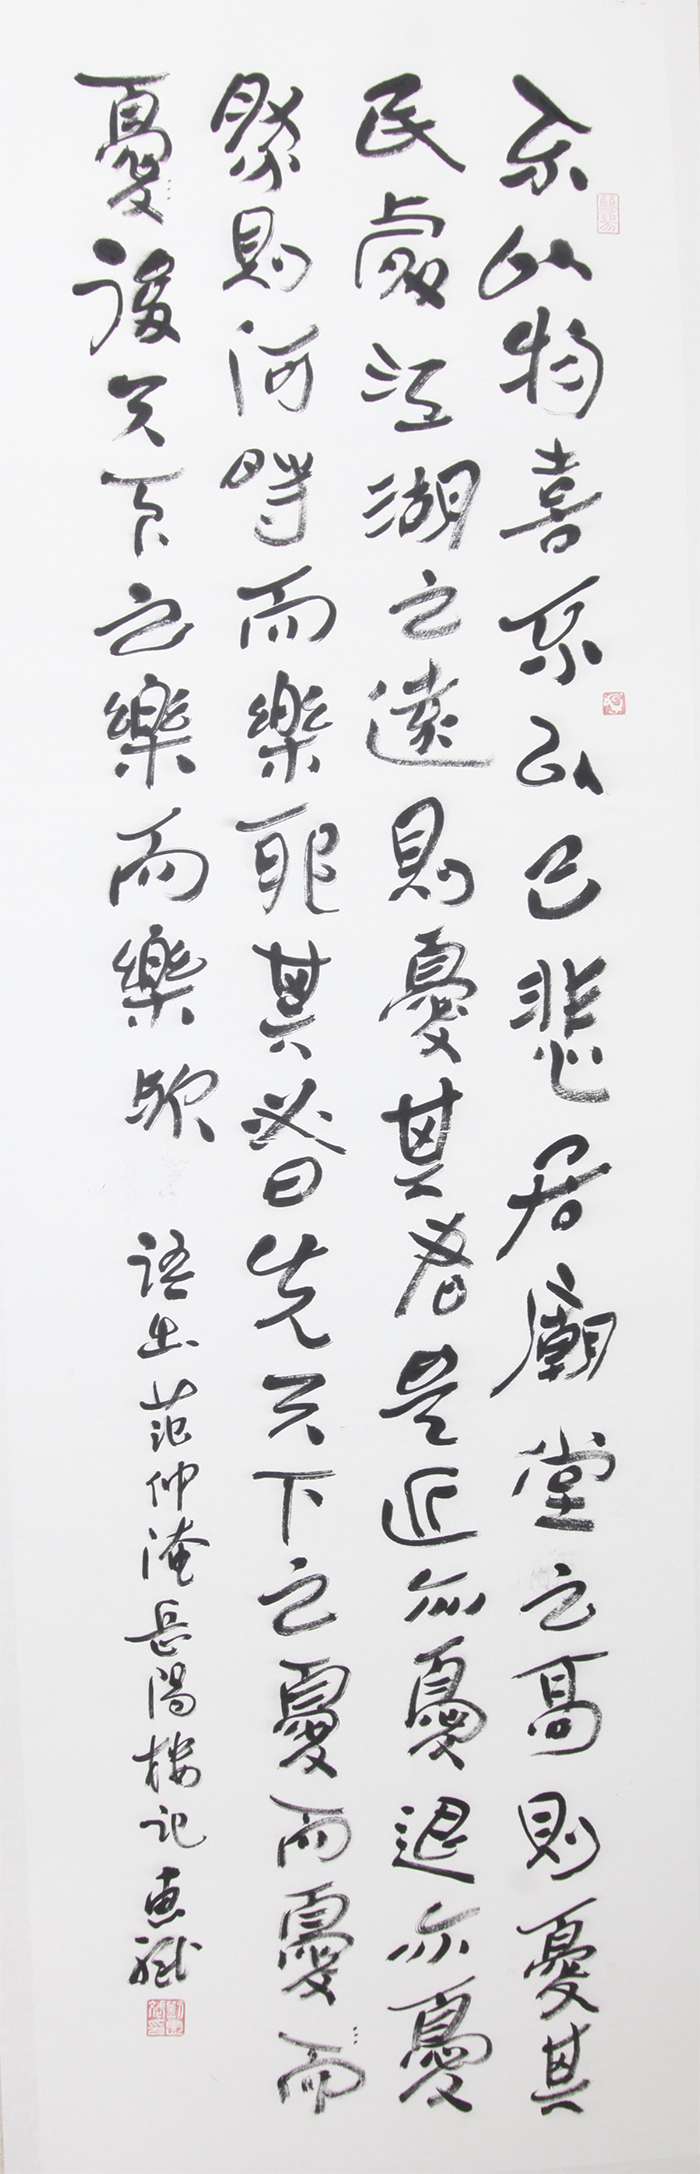 不以物喜不以己悲居廟堂之高則憂其
民處江湖之遠則憂其君是近亦憂退亦憂
然則何時而樂耶其必曰先天下之憂而憂而
憂後天下之樂而樂歟
語出范仲淹岳陽樓記